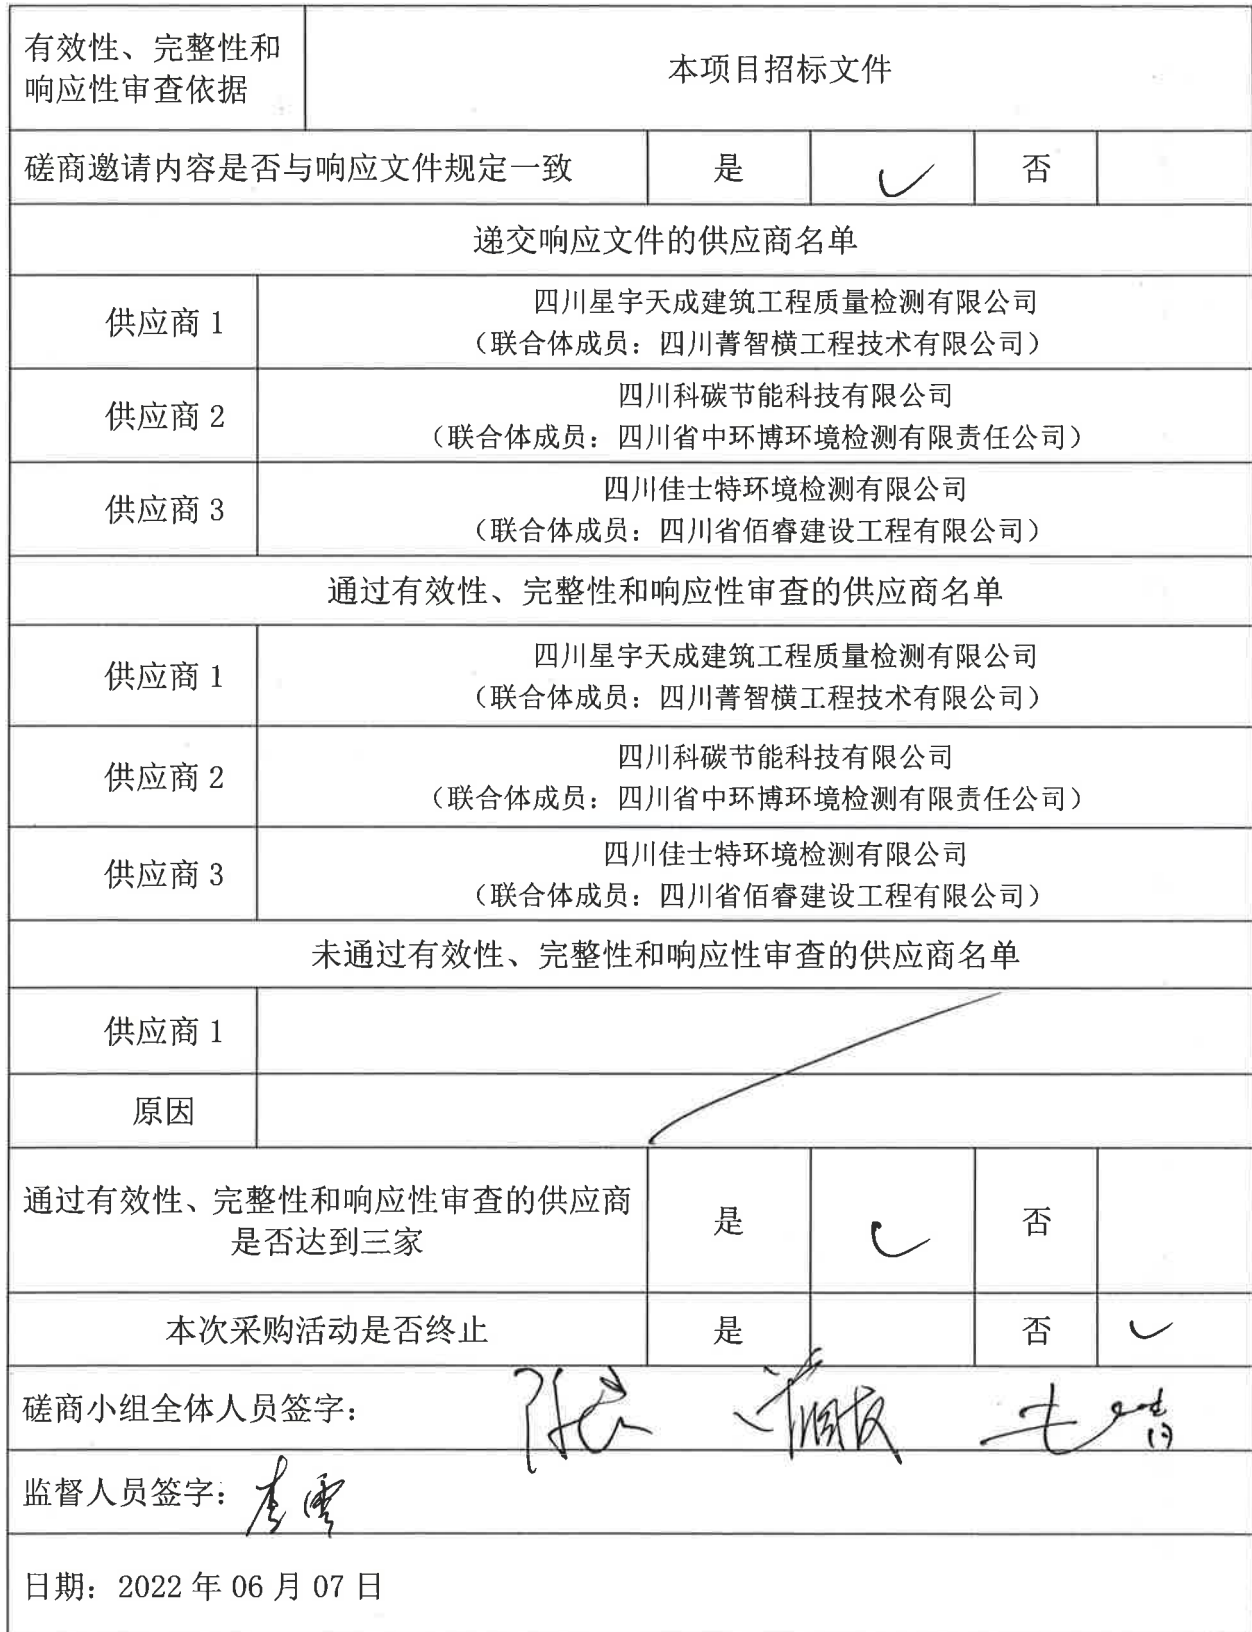 有效性、完整性和
响应性审查依据
本项目招标文件
磋商邀请内容是否与响应文件规定一致 是 ✓ 否
递交响应文件的供应商名单
供应商 1
四川星宇天成建筑工程质量检测有限公司
（联合体成员：四川菁智横工程技术有限公司）
供应商 2
四川科碳节能科技有限公司
（联合体成员：四川省中环博环境检测有限责任公司）
供应商 3
四川佳士特环境检测有限公司
（联合体成员：四川省佰睿建设工程有限公司）
通过有效性、完整性和响应性审查的供应商名单
供应商 1
四川星宇天成建筑工程质量检测有限公司
（联合体成员：四川菁智横工程技术有限公司）
供应商 2
四川科碳节能科技有限公司
（联合体成员：四川省中环博环境检测有限责任公司）
供应商 3
四川佳士特环境检测有限公司
（联合体成员：四川省佰睿建设工程有限公司）
未通过有效性、完整性和响应性审查的供应商名单
供应商 1
原因
通过有效性、完整性和响应性审查的供应商
是否达到三家
是 ✓ 否
本次采购活动是否终止 是 否 ✓
磋商小组全体人员签字：
监督人员签字：
日期：2022 年 06 月 07 日